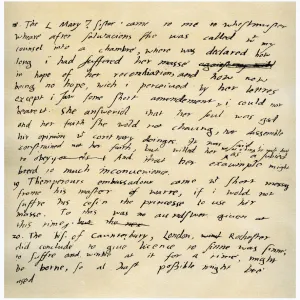 The L Mary my sister came to me to Whestmuster
wheare after salutacions she was called wt my
counsel into a chambre, where was declared how
long i had suffered her masse
in hope of her reconciliation and how now
being no hope, wich i perceived by her lettres
except i saw some short amendement, i could not
beare it. She answerid that her soul was god
and her faith she wold not chaung, nor dissemble
her opinion wt contrary doinges. It was
faith, but willed her
to obey And that her exaumple might
breed to much inconvenience.
19 Themperours embassadour came wt short messag
from his master of warre, if i wold not
suffre his cosin the princesse to use her
masse. To this was no aunswer given at
this time,
20 The bs. of Caunterbury, London, Rochester
did conclude to give licence to sinne was sinne,
to suffre and winke at it for a time, might
be borne, so al hast possible might bee
used